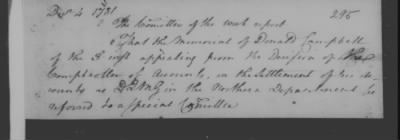 Decr 4 1781
295
The Committee of the week report
That the Memorial of Donald Campbell
of the appealing from the Decision of the
Comptroller of Accounts, in the Settlement of his Ac
counts as DQMG in the Northern Department be
referred to a special Committee